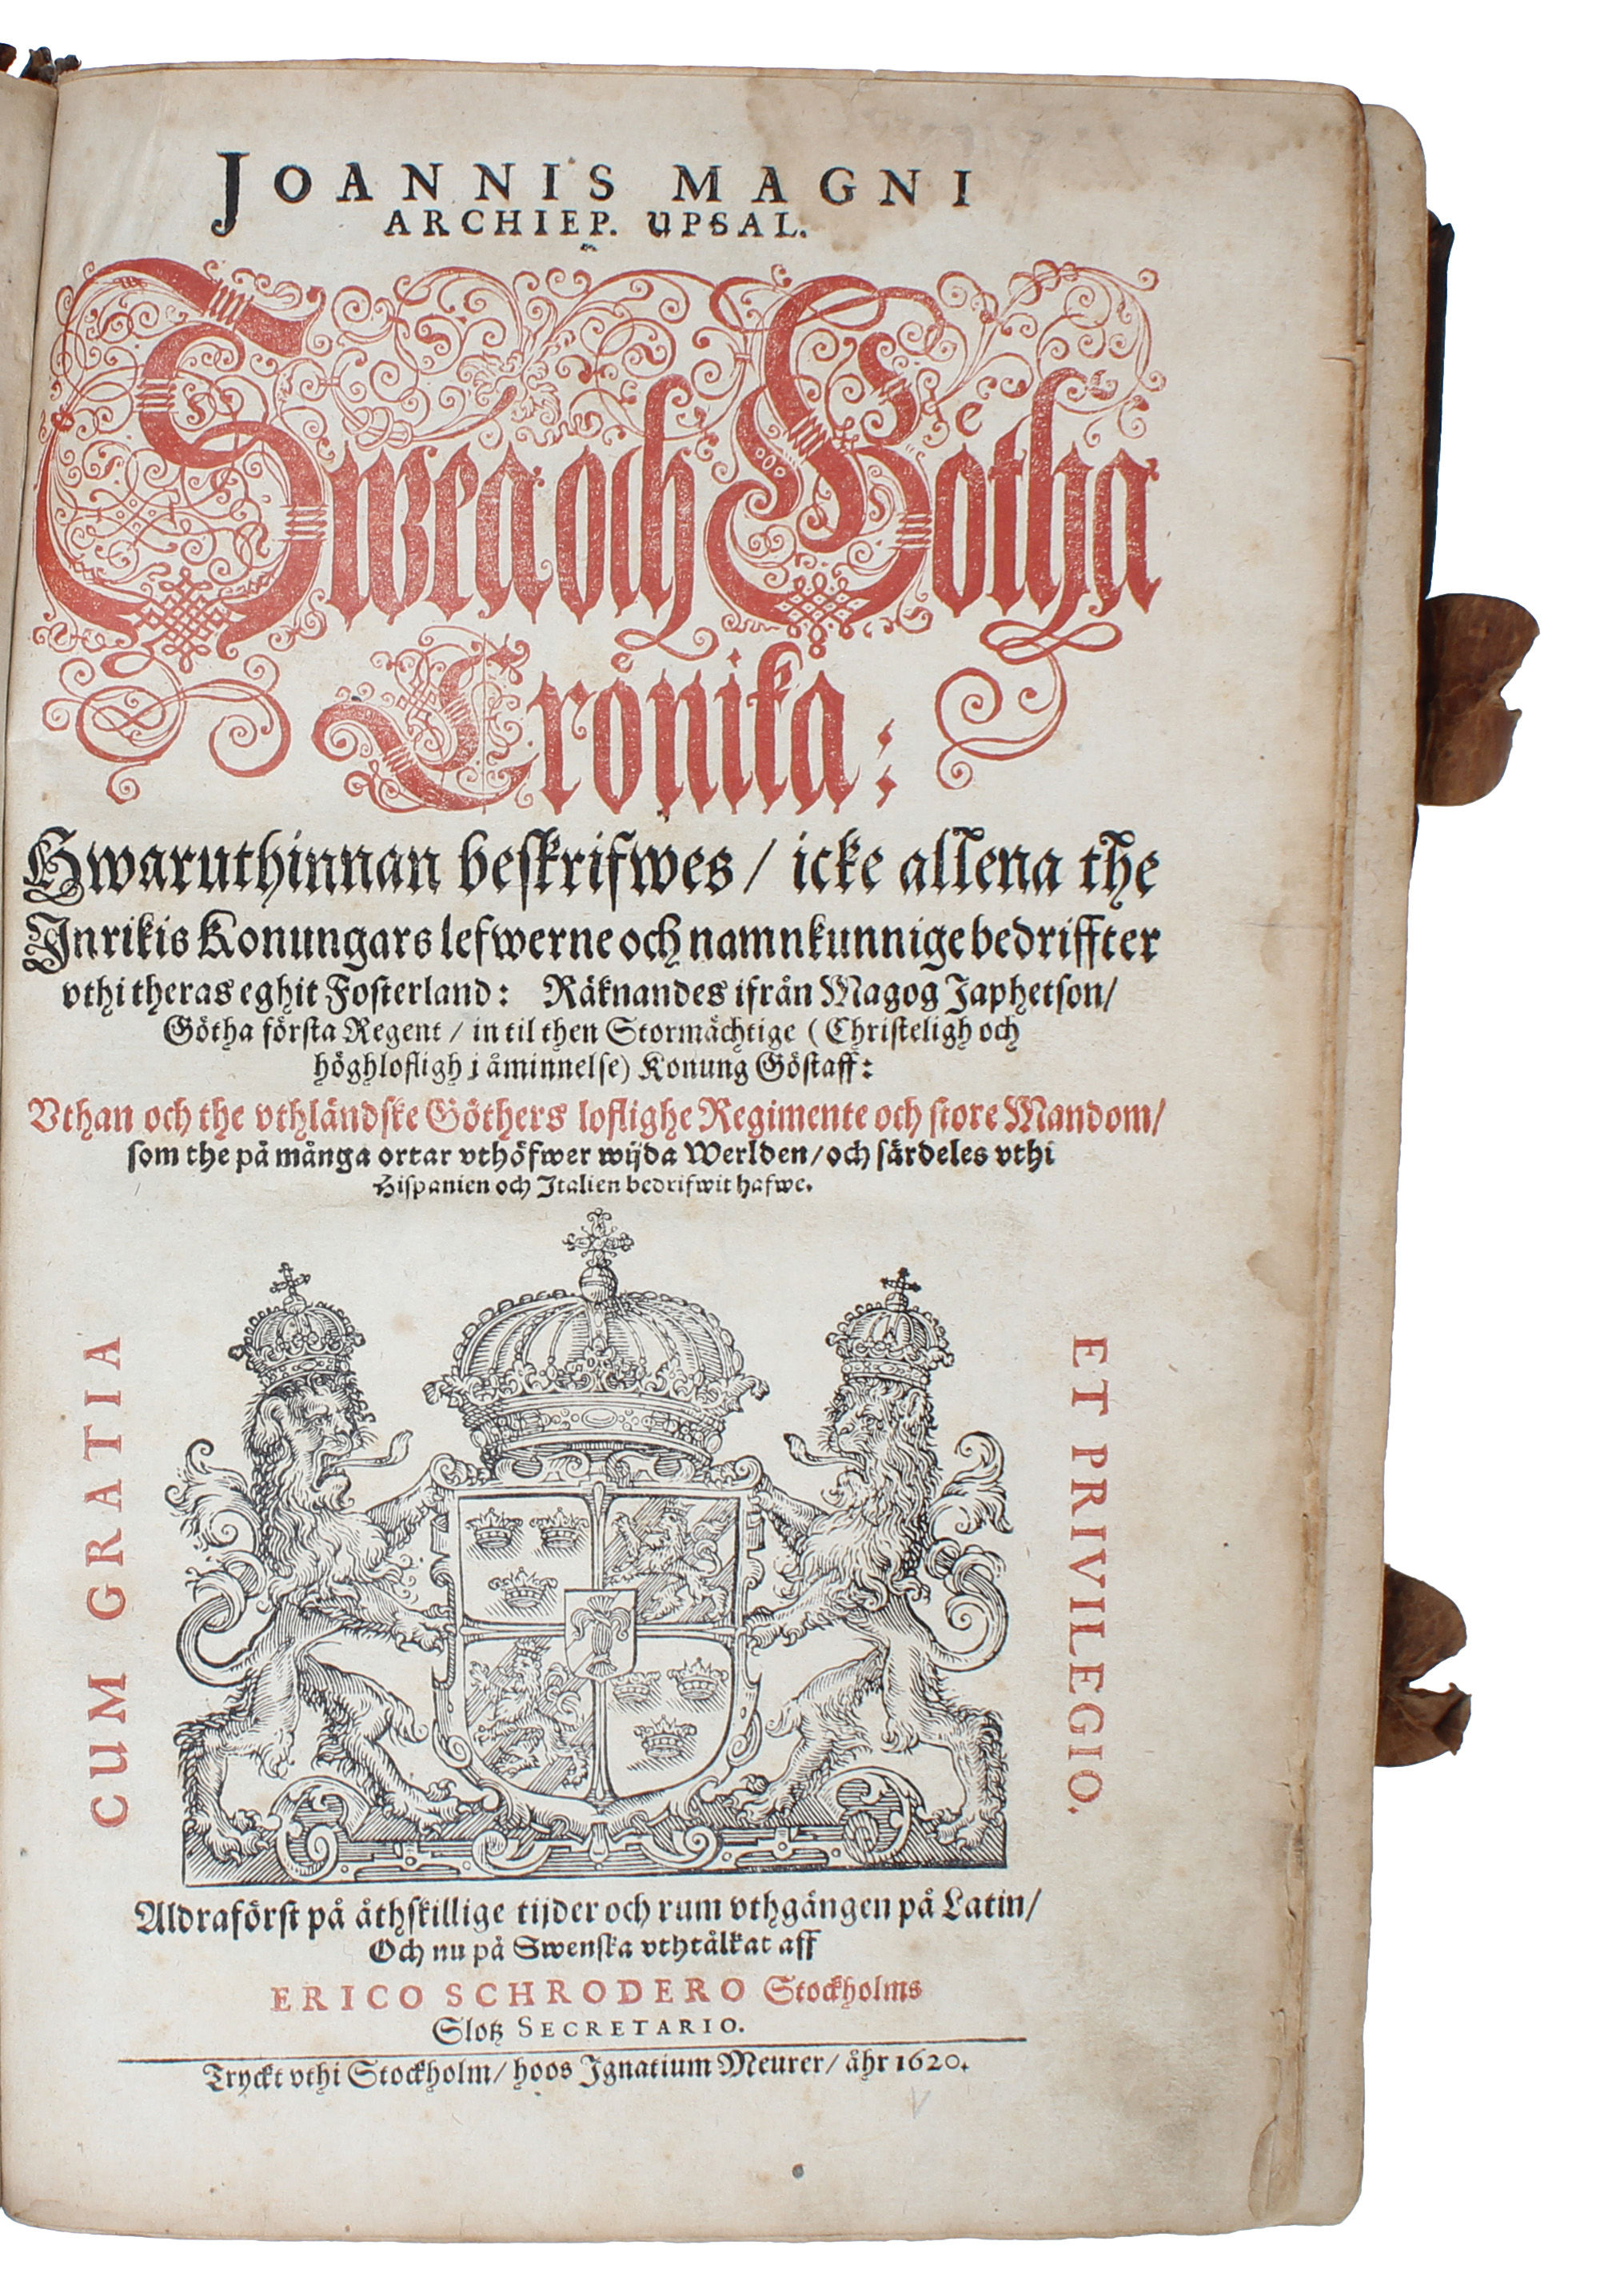 JOANNIS MAGNI
ARCHIEP. UPSAL.
Swea och Götha
Crönika:
Hwaruthinnan beskrifwes / icke allena the
Inrikis Konungars lefwerne och namnkunnige bedriffter
vthi theras eghit Fosterland: Räknandes ifrån Magog Japhetson/
Götha första Regent / in til then Stormächtige (Christeligh och
höghlofligh i åminnelse) Konung Göstaff:
Vthan och the vthländske Göthers loflighe Regimente och store Mandom/
som the på många ortar vthöfwer wijda Werlden/och särdeles vthi
Hispanien och Italien bedrifwit hafwe.
CUM GRATIA
ET PRIVILEGIO.
Aldraförst på åthskillige tijder och rum vthgången på Latin/
Och nu på Swenska vthtålkat aff
ERICO SCHRODERO Stockholms
Slotz SECRETARIO.
Tryckt vthi Stockholm/ hoos Ignatium Meurer/ åhr 1620.